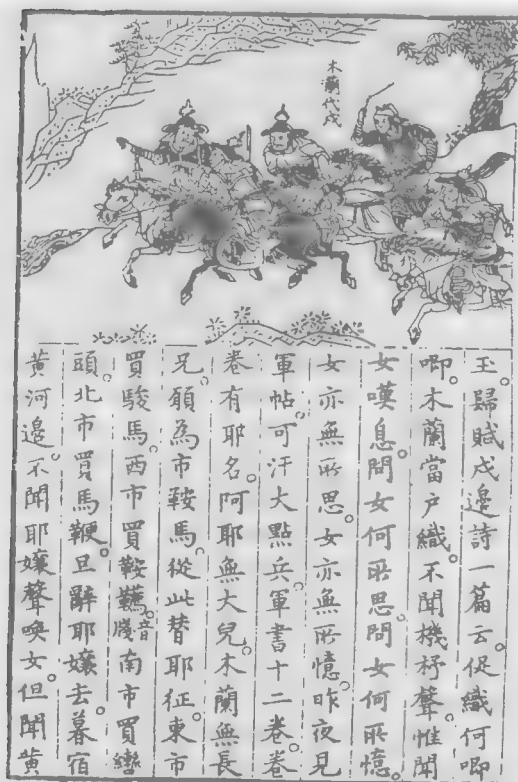 木蘭代戍
玉。歸賦戍邊詩一篇云。促織何唧
唧。木蘭當户織。不聞機杼聲。惟聞
女嘆息。問女何所思。問女何所憶。
女亦無所思。女亦無所憶。昨夜見
軍帖。可汗大點兵。軍書十二卷。卷
卷有耶名。阿耶無大兒。木蘭無長
兄。願為市鞍馬。從此替耶征。東市
買駿馬。西市買鞍韉。音牋南市買轡
頭。北市買馬鞭。旦辭耶孃去。暮宿
黄河邊。不聞耶孃聲喚女。但聞黄